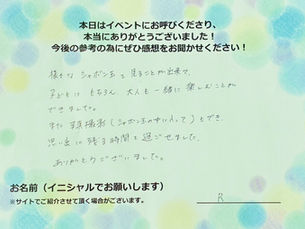 本日はイベントにお呼びくださり、
本当にありがとうございました！
今後の参考の為にぜひ感想をお聞かせください！
様々なシャボン玉を見ることが出来て、
子どもは もちろん 大人も一緒に楽しむことが
できました。
また 写真撮影(シャボン玉の中に入って)もでき、
思い出に残る時間を過ごせました。
ありがとうございました。
お名前（イニシャルでお願いします）
R
※サイトでご紹介させて頂く場合がございます。